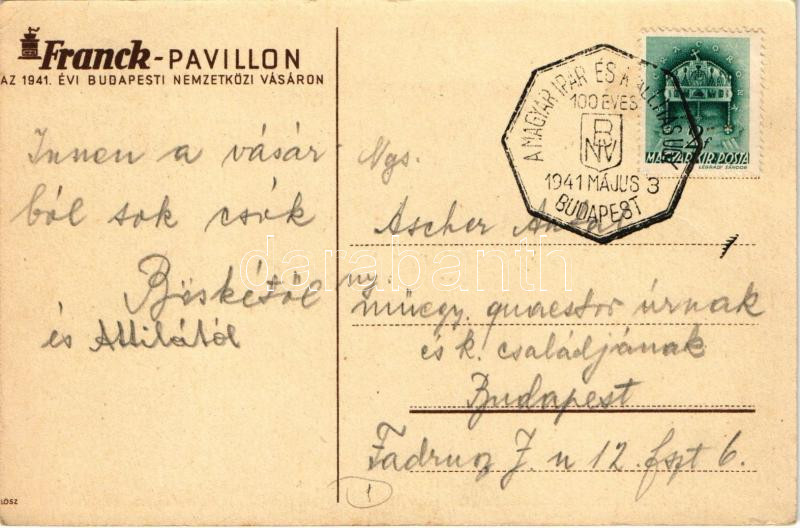 Franck-PAVILLON
AZ 1941. ÉVI BUDAPESTI NEMZETKÖZI VÁSÁRON
Innen a vásár
ból sok csók
Böskétől
és Attilától
A MAGYAR IPAR ÉS A
100 ÉVES
BNV
1941 MÁJUS 3
BUDAPEST
MAGYAR KIR. POSTA
LÉGRÁDI SÁNDOR
Ngs.
Ascher Antal
ny.
műegy. quaestor úrnak
és k. családjának
Budapest
Fadrusz J. u 12. fszt 6.
1
LÖSZ
darabanth